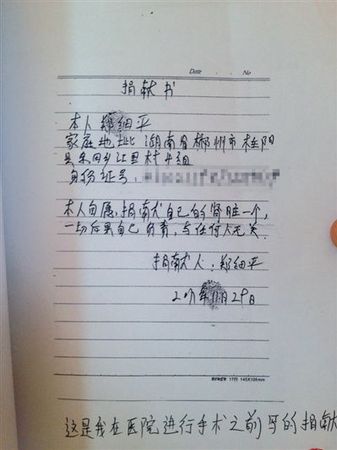 Date No
捐献书
本人郑细平
家庭地址 湖南省郴州市桂阳
县东回乡江里村4组
身份证号:
本人自愿,捐献自己的肾脏一个,
一切后果自己负责,与任何人无关.
捐献人:郑细平
29日
这是我在医院进行手术之前写的捐献